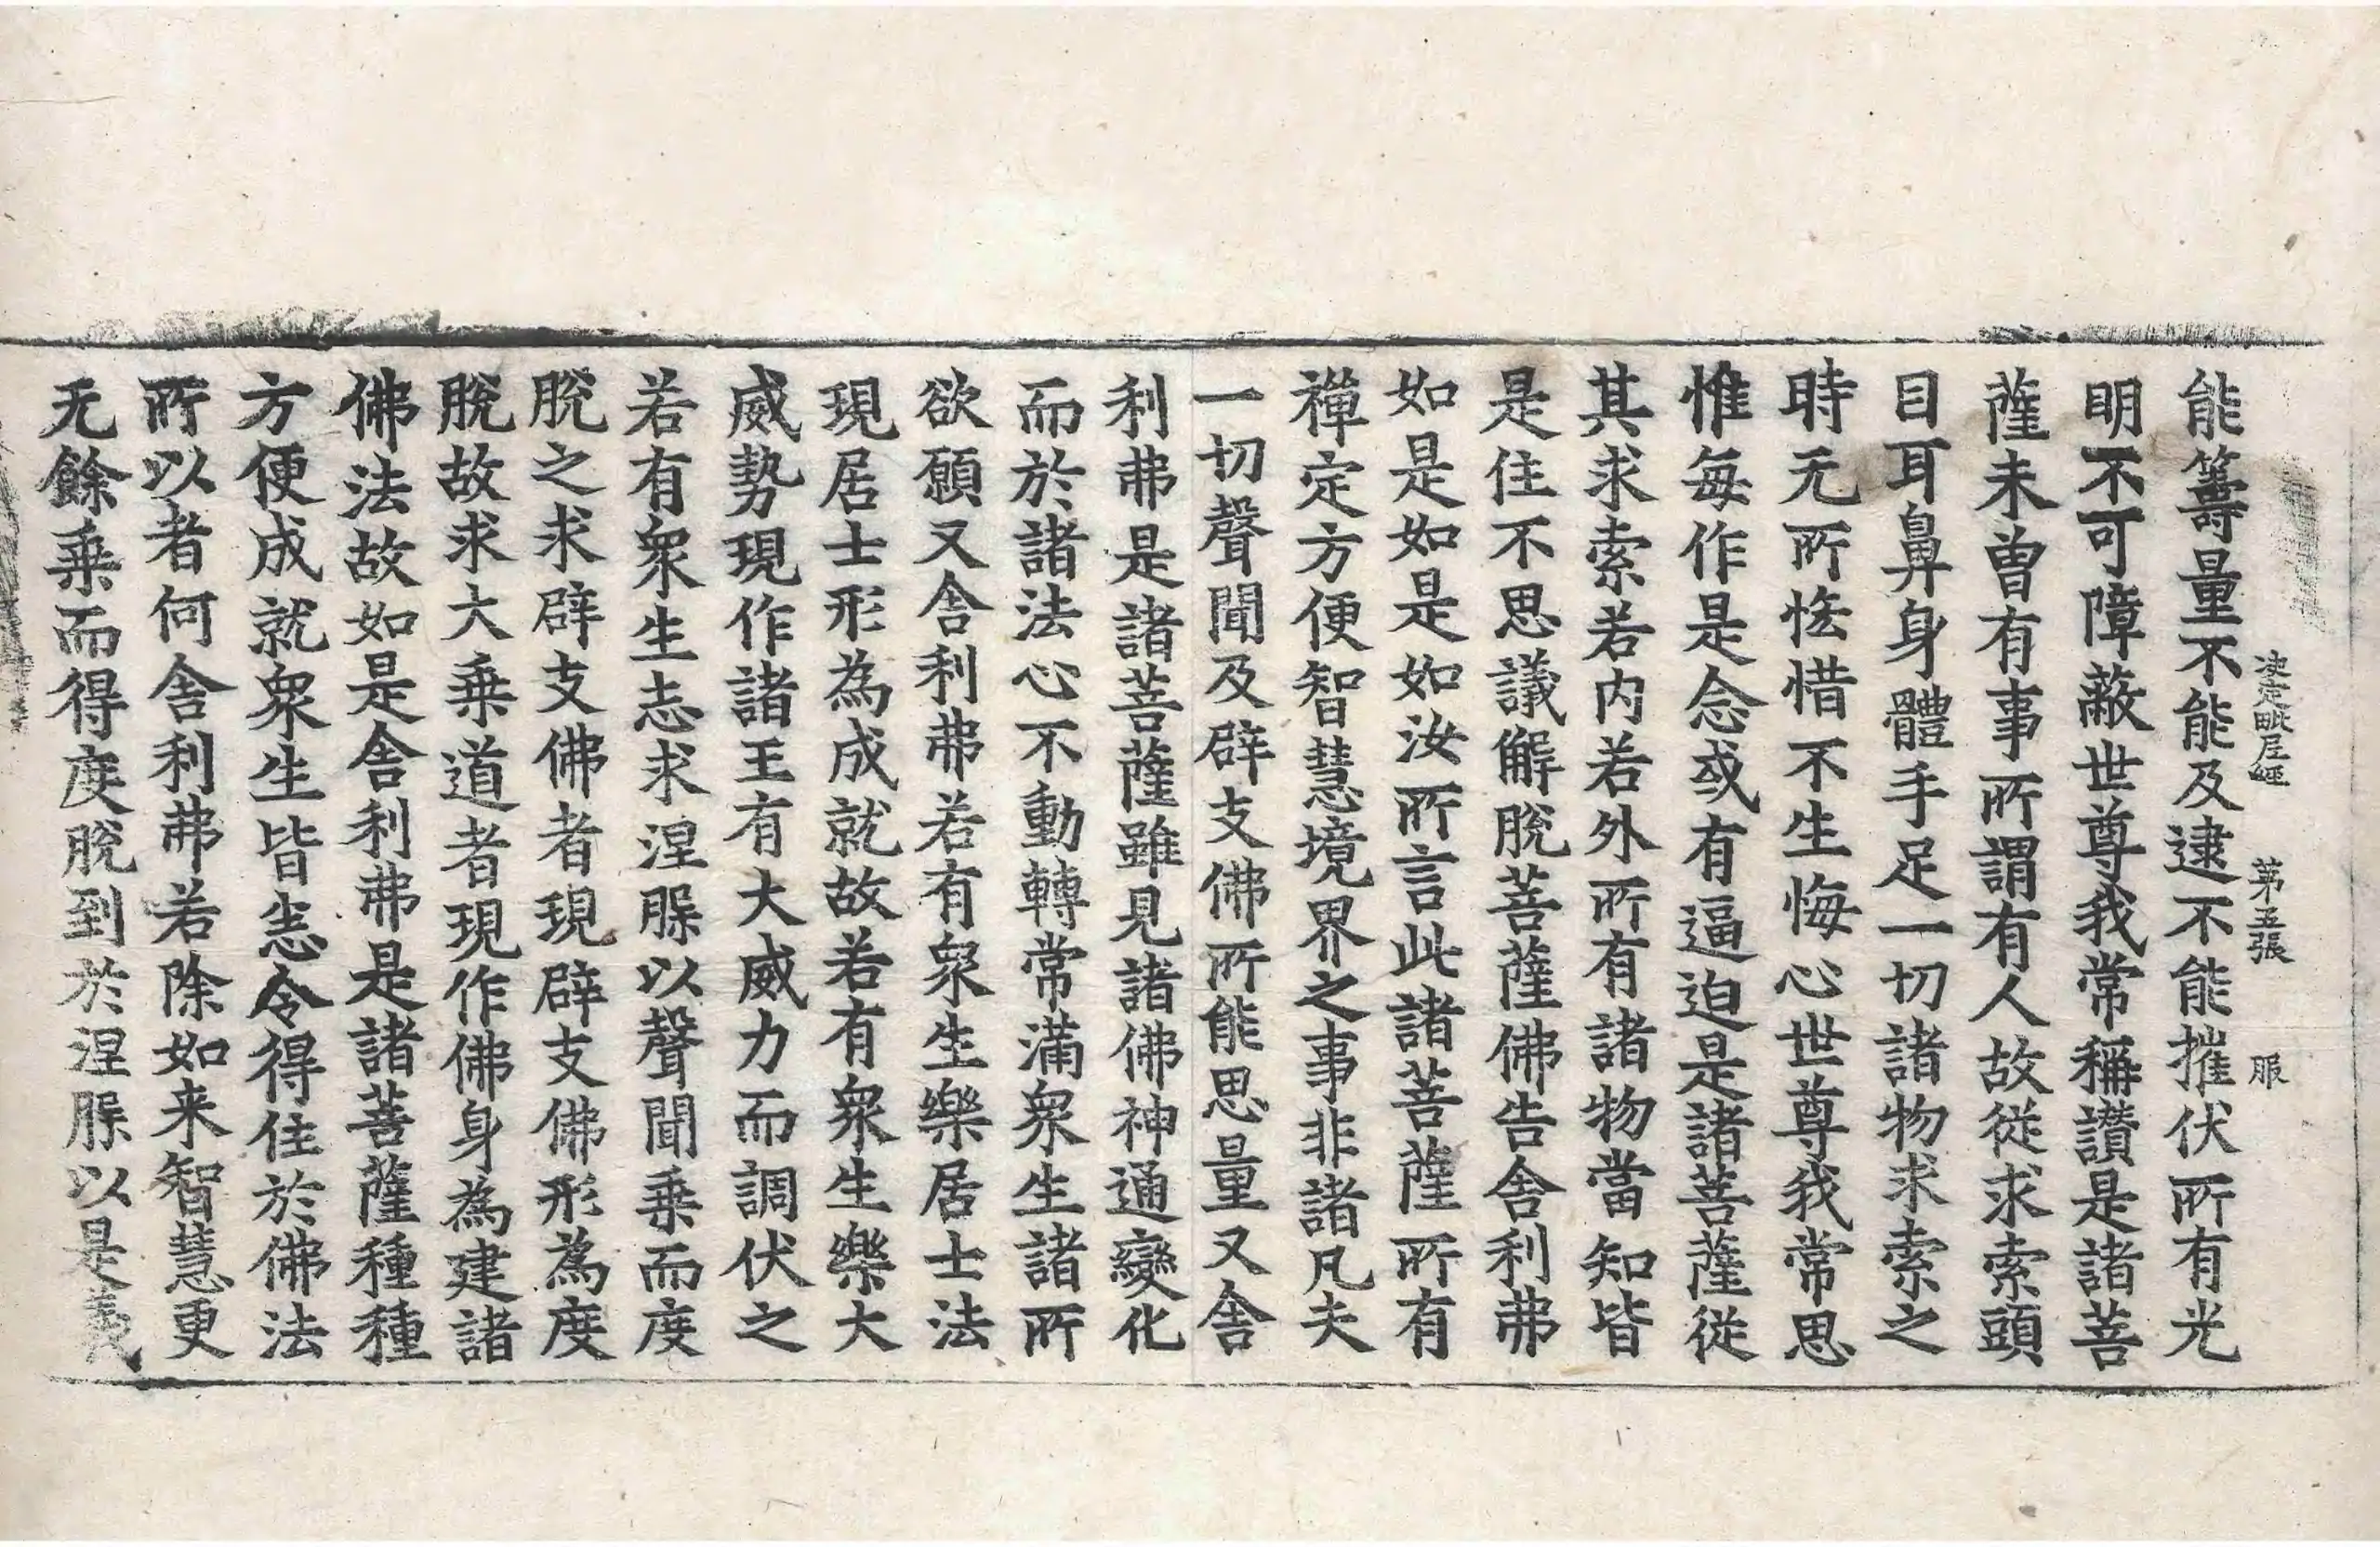 決定毗尼經 第五張 服
能籌量不能及逮不能摧伏所有光
明不可障蔽世尊我常稱讚是諸菩
薩未曽有事所謂有人故從求索頭
目耳鼻身體手足一切諸物求索之
時无所悋惜不生悔心世尊我常思
惟每作是念或有逼迫是諸菩薩從
其求索若内若外所有諸物當知皆
是住不思議解脫菩薩佛告舎利弗
如是如是如汝所言此諸菩薩所有
禪定方便智慧境界之事非諸凡夫
一切聲聞及辟支佛所能思量又舎
利弗是諸菩薩雖見諸佛神通變化
而於諸法心不動轉常滿衆生諸所
欲願又舎利弗若有衆生樂居士法
現居士形為成就故若有衆生樂大
威勢現作諸王有大威力而調伏之
若有衆生志求涅脲以聲聞乗而度
脫之求辟支佛者現辟支佛形為度
脫故求大乗道者現作佛身為建諸
佛法故如是舎利弗是諸菩薩種種
方便成就衆生皆悉令得住於佛法
所以者何舎利弗若除如来智慧更
无餘乗而得度脫到於涅脲以是義